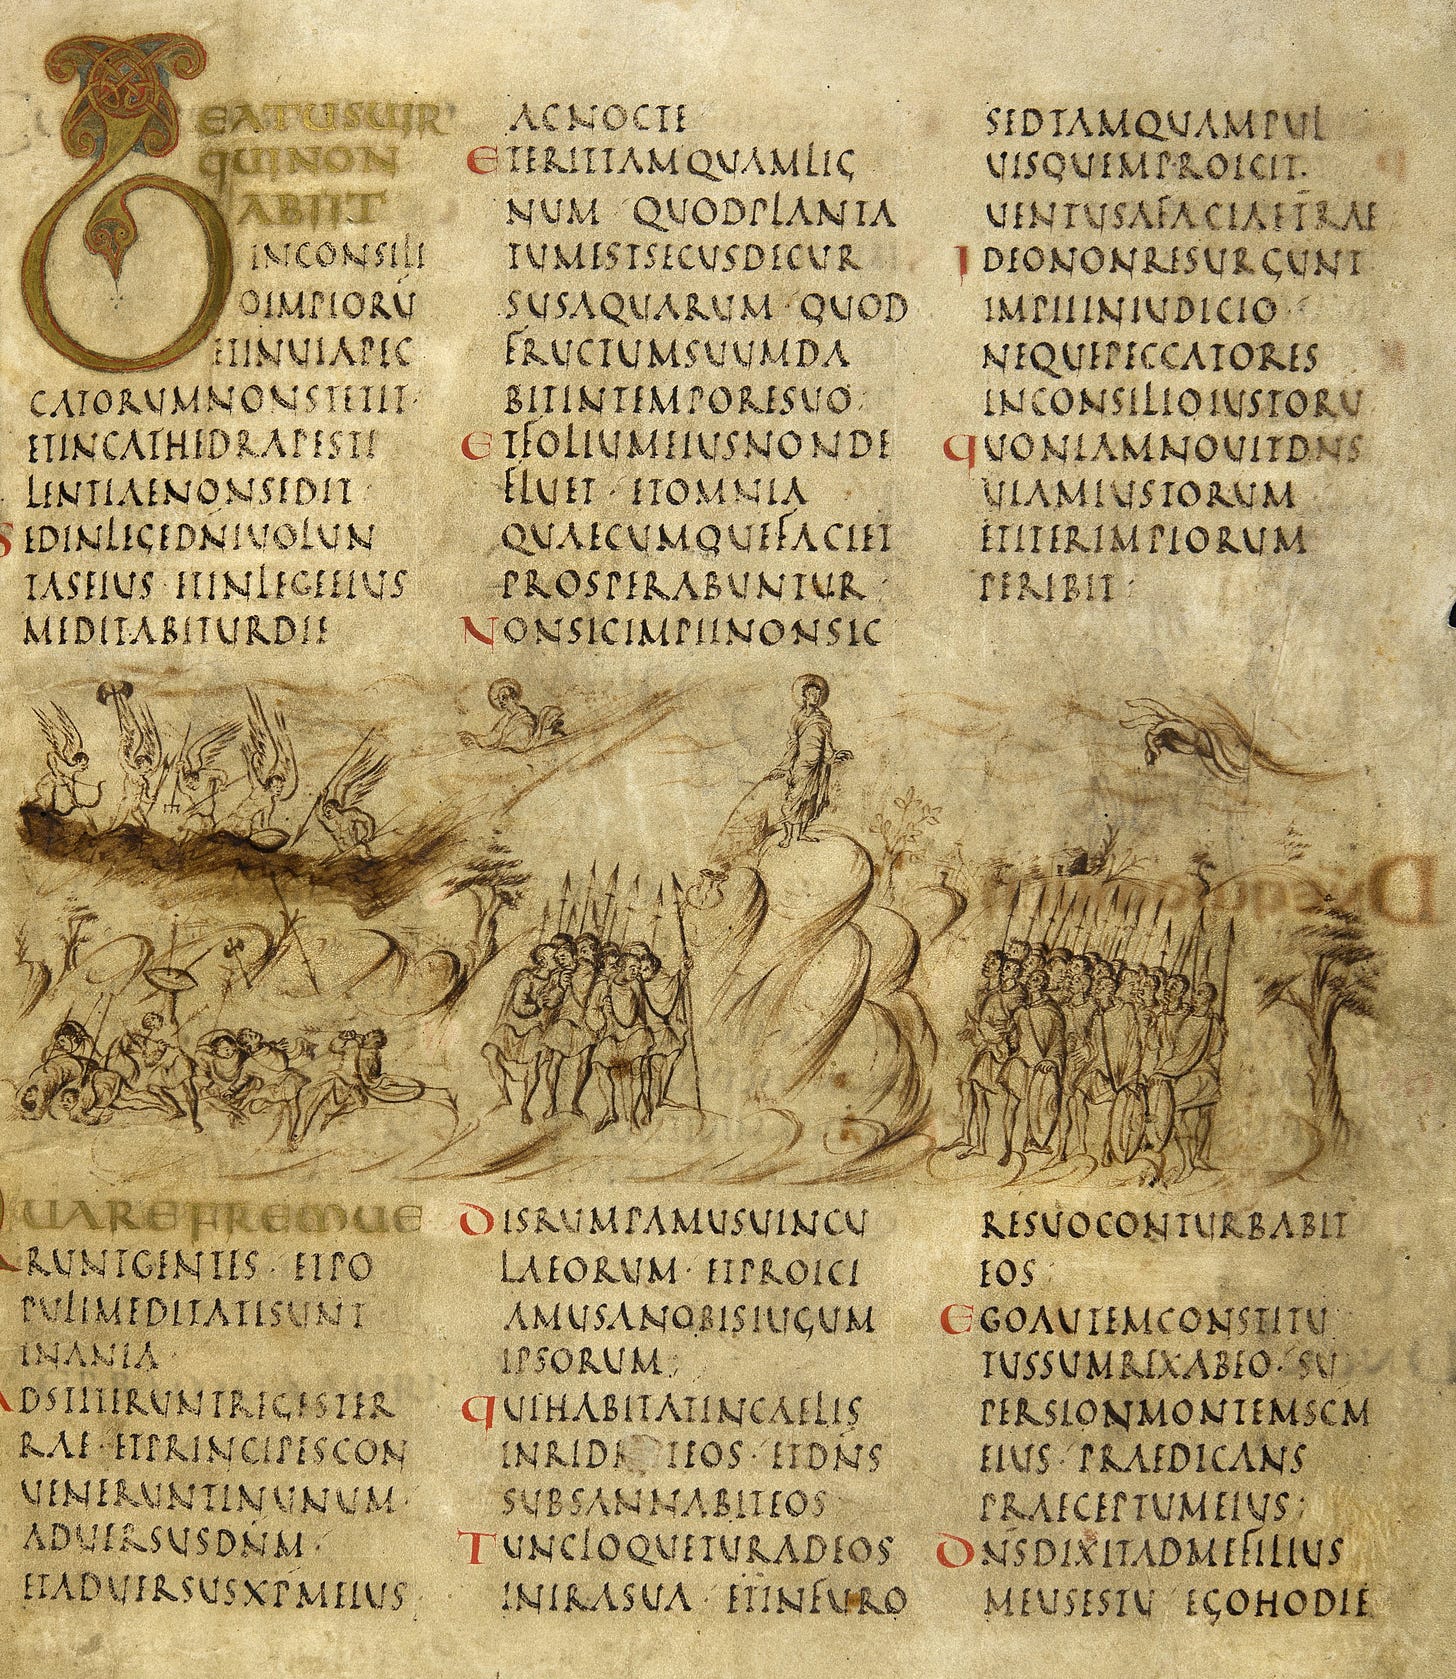 BEATUSUIR
QUINON
ABIIT
INCONSILI
OIMPIORŪ
ETINUIAPEC
CATORUMNONSTETIT·
ETINCATHEDRAPESTI
LENTIAENONSEDIT
SEDINLEGEDN̄IUOLUN
TASEIUS·ETINLEGEEIUS
MEDITABITURDIE
ACNOCTE
ETERITTAMQUAMLIG
NUM QUODPLANTA
TUMESTSECUSDECUR
SUSAQUARUM·QUOD
FRUCTUMSUUMDA
BITINTEMPORESUO·
ETFOLIUMEIUSNONDE
FLUET·ETOMNIA
QUAECUMQUEFACIET
PROSPERABUNTUR
NONSICIMPIINONSIC
SEDTAMQUAMPUL
UISQUEMPROICIT·
UENTUSAFACIAETRAE
IDEONONRESURGUNT
IMPIIINIUDICIO
NEQUEPECCATORES
INCONSILIOIUSTORU
QUONIAMNOUITDNS
UIAMIUSTORUM
ETITERIMPIORUM
PERIBIT·
QUAREFREMUE
RUNTGENTES·ETPO
PULIMEDITATISUNT
INANIA·
ADSTITERUNTREGESTER
RAE·ETPRINCIPESCON
UENERUNTINUNUM·
ADUERSUSDN̄M·
ETADUERSUSXP̄MEIUS
DISRUMPAMUSUINCU
LAEORUM·ETPROICI
AMUSANOBISIUGUM
IPSORUM;
QUIHABITATINCAELIS
INRIDE TEOS·ETDN̄S
SUBSANNABITEOS
TUNCLOQUETURADEOS
INIRASUA·ETINFURO
RESUOCONTURBABIT
EOS
EGOAUTEMCONSTITU
TUSSUMREXABEO·SU
PERSIONMONTEMSCM
EIUS·PRAEDICANS
PRAECEPTUMEIUS;
DN̄SDIXITADMEFILIUS
MEUSESTU EGOHODIE